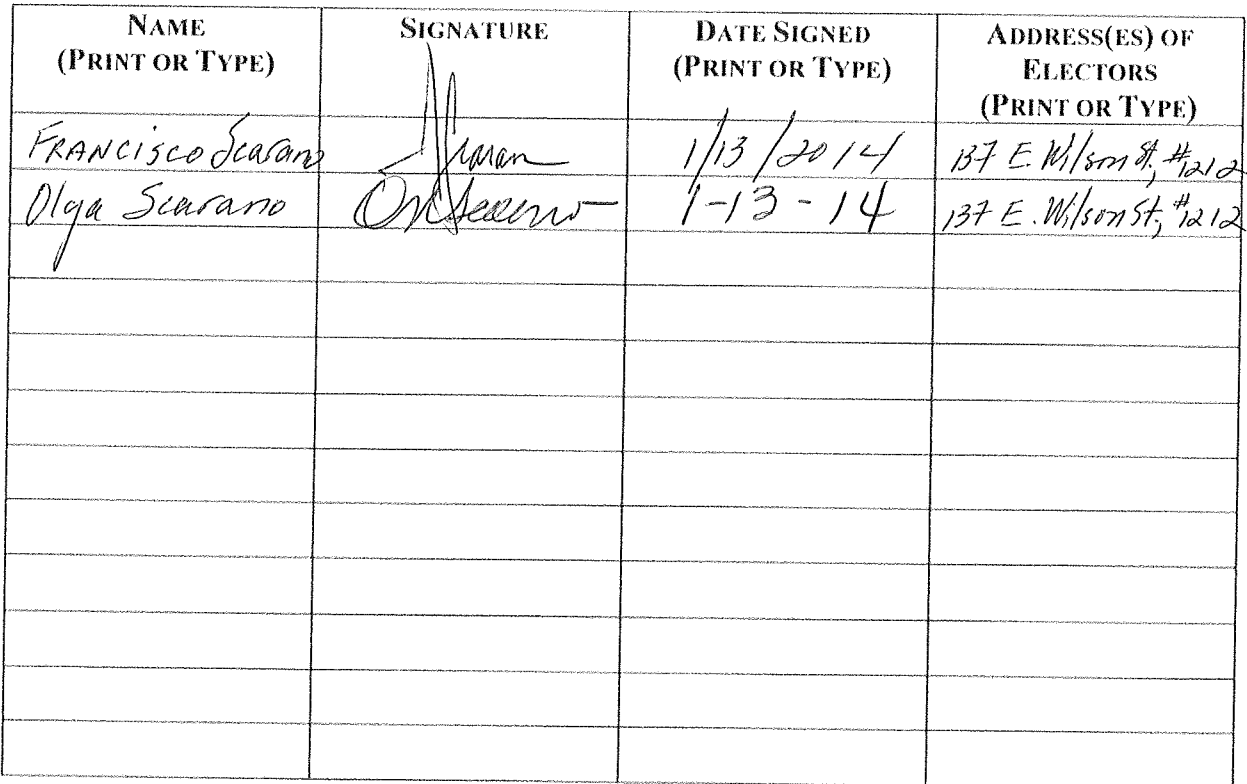 NAME
(PRINT OR TYPE)
SIGNATURE
DATE SIGNED
(PRINT OR TYPE)
ADDRESS(ES) OF
ELECTORS
(PRINT OR TYPE)
FRANCISCO Scarano 1/13/2014 137 E. Wilson St., #1212
Olga Scarano 1-13-14 137 E. Wilson St., #1212